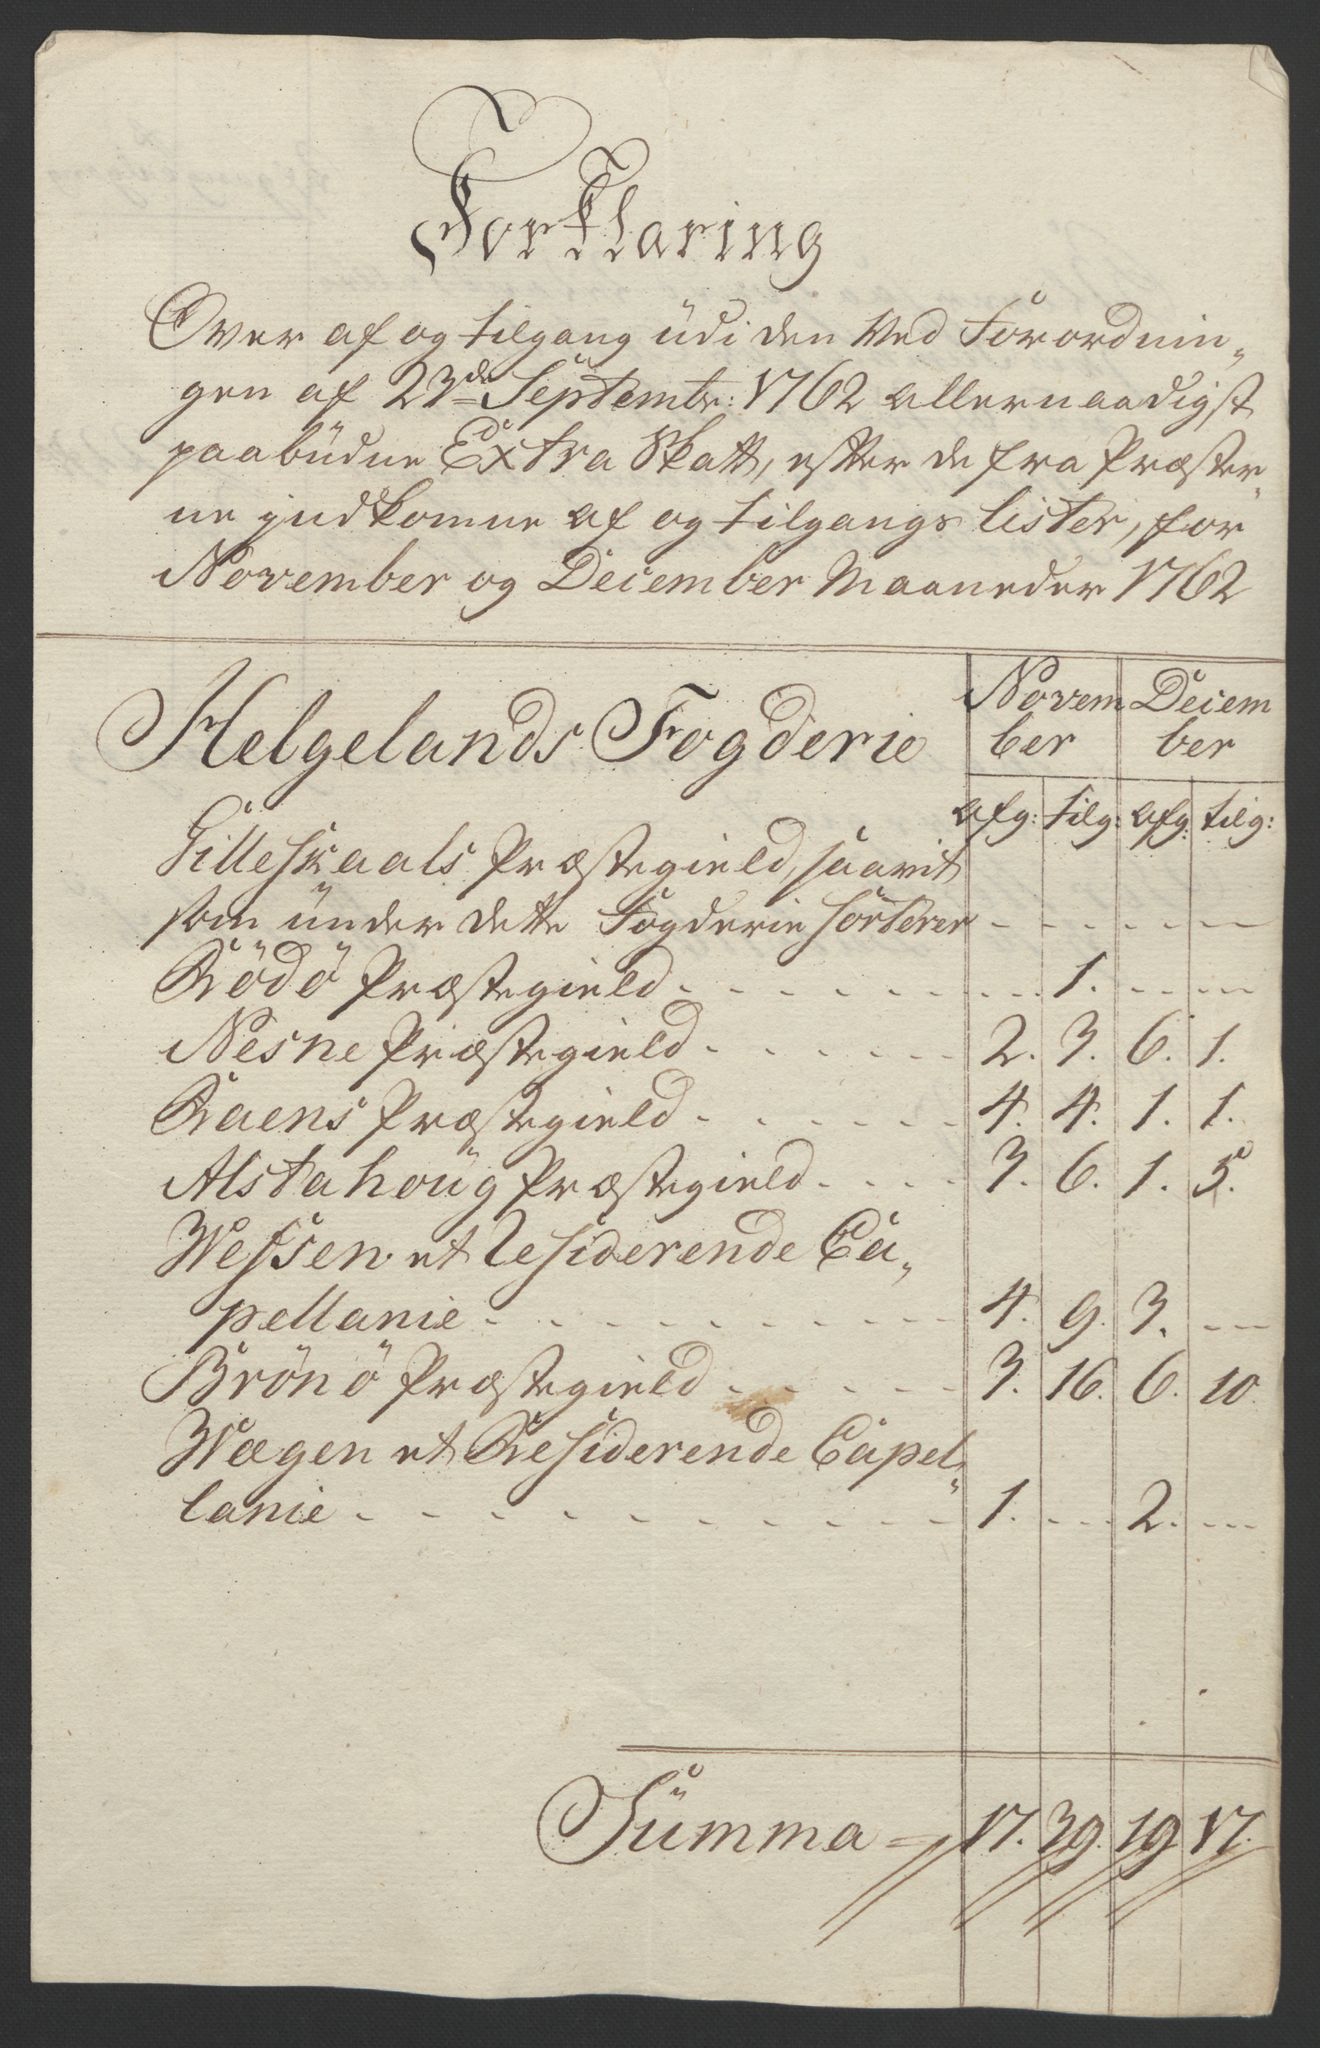 Forklaring
Over af og tilgang üdi den Ved Forordnin„
gen af 23de Septembr: 1762 allernaadigst
paabüdne Extra Skatt, efter de fra Præster„
ne indkomne af og tilgangs Lister, for
November og December Maaneder 1762
Helgelands Fogderie
Novem Decem
ber ber
afg: tilg: afg: tilg:
Gilleskaals Præstegield, saavit
som ünder dette Fogderie sorterer - - - - - -
Rödö Præstegield - - - - - - - - - 1. - - - - -
Nesne Præstegield - - - - - - 2. 3. 6. 1.
Raens Præstegield - - - - - - 4. 4. 1. 1.
Alstahoüg Præstegield - - - - 3. 6. 1. 5.
Wefsen et Residerende Ca„
pellanie - - - - - - - - - - 4. 9. 3. - - -
Brönö Præstegield - - - - - 3. 16. 6. 10.
Wægen et Residerende Capel„
lanie - - - - - - - - - - - 1. - - - 2. - - -
Sümma = 17. 39. 19 17.